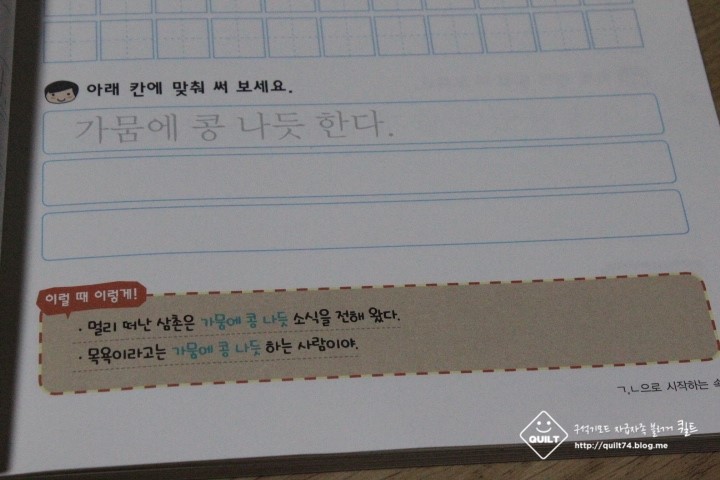 아래 칸에 맞춰 써 보세요.
가뭄에 콩 나듯 한다.
이럴 때 이렇게!
· 멀리 떠난 삼촌은 가뭄에 콩 나듯 소식을 전해 왔다.
· 목욕이라고는 가뭄에 콩 나듯 하는 사람이야.
ㄱ,ㄴ으로 시작하는 속
QUILT
구석기모드 자급자족 블러거 퀼트
http://quilt74.blog.me